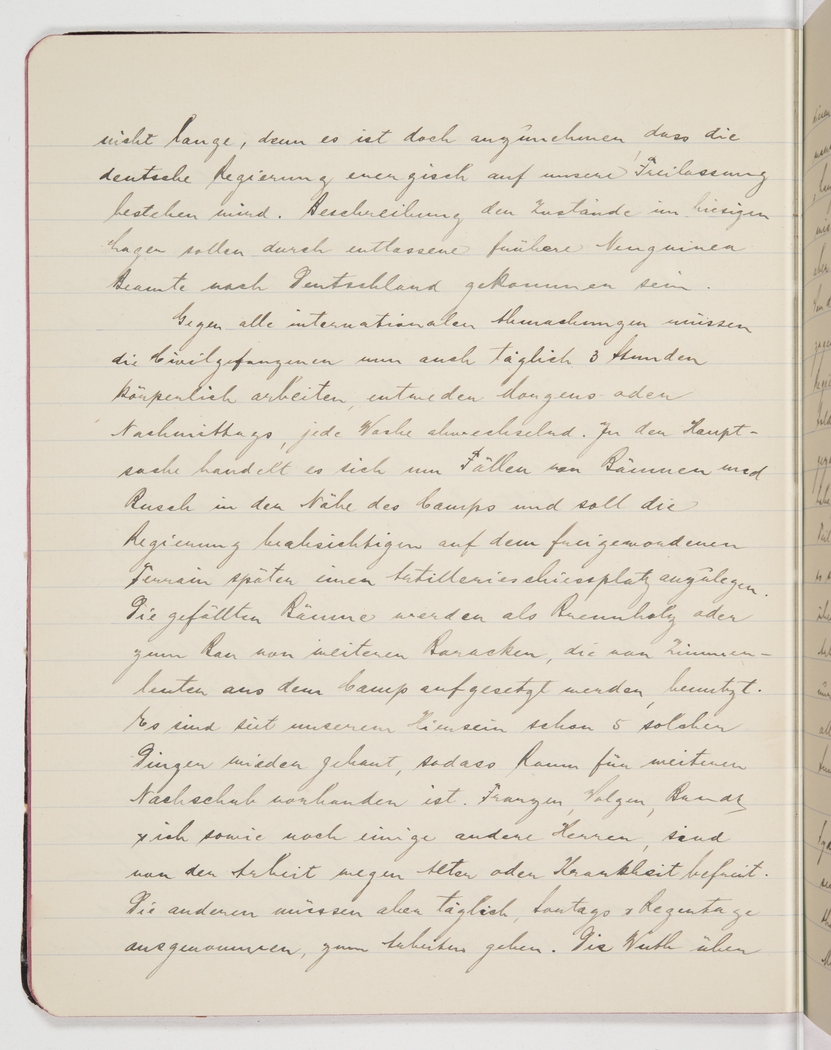 nicht lange, denn es ist doch anzunehmen, dass die
deutsche Regierung energisch auf unsere Freilassung
bestehen wird. Beschreibung der Zustände im hiesigen
Lager sollen durch entlassene frühere Neuguinea
Beamte nach Deutschland gekommen sein.
Gegen alle internationalen Abmachungen müssen
die Civilgefangenen nun auch täglich 3 Stunden
körperlich arbeiten, entweder Morgens oder
Nachmittags, jede Woche abwechselnd. In der Haupt-
sache handelt es sich um Fällen von Bäumen und
Busch in der Nähe des Camps und soll die
Regierung beabsichtigen auf dem freigewordenen
Terrain später einen Artillerieschiessplatz anzulegen.
Die gefällten Bäume werden als Brennholz oder
zum Bau von weiteren Baracken, die von Zimmer-
leuten aus dem Camp aufgesetzt werden, benutzt.
Es sind seit unserem Hiersein schon 5 solcher
Dinger wieder gebaut, sodass Raum für weiteren
Nachschub vorhanden ist. Franzen, Bundt
x ich sowie noch einige andere Herren, sind
von der Arbeit wegen Alter oder Krankheit befreit.
Die anderen müssen aber täglich, Sontags x Regentage
ausgenommen, zum Arbeiten gehen. Die Wuth über